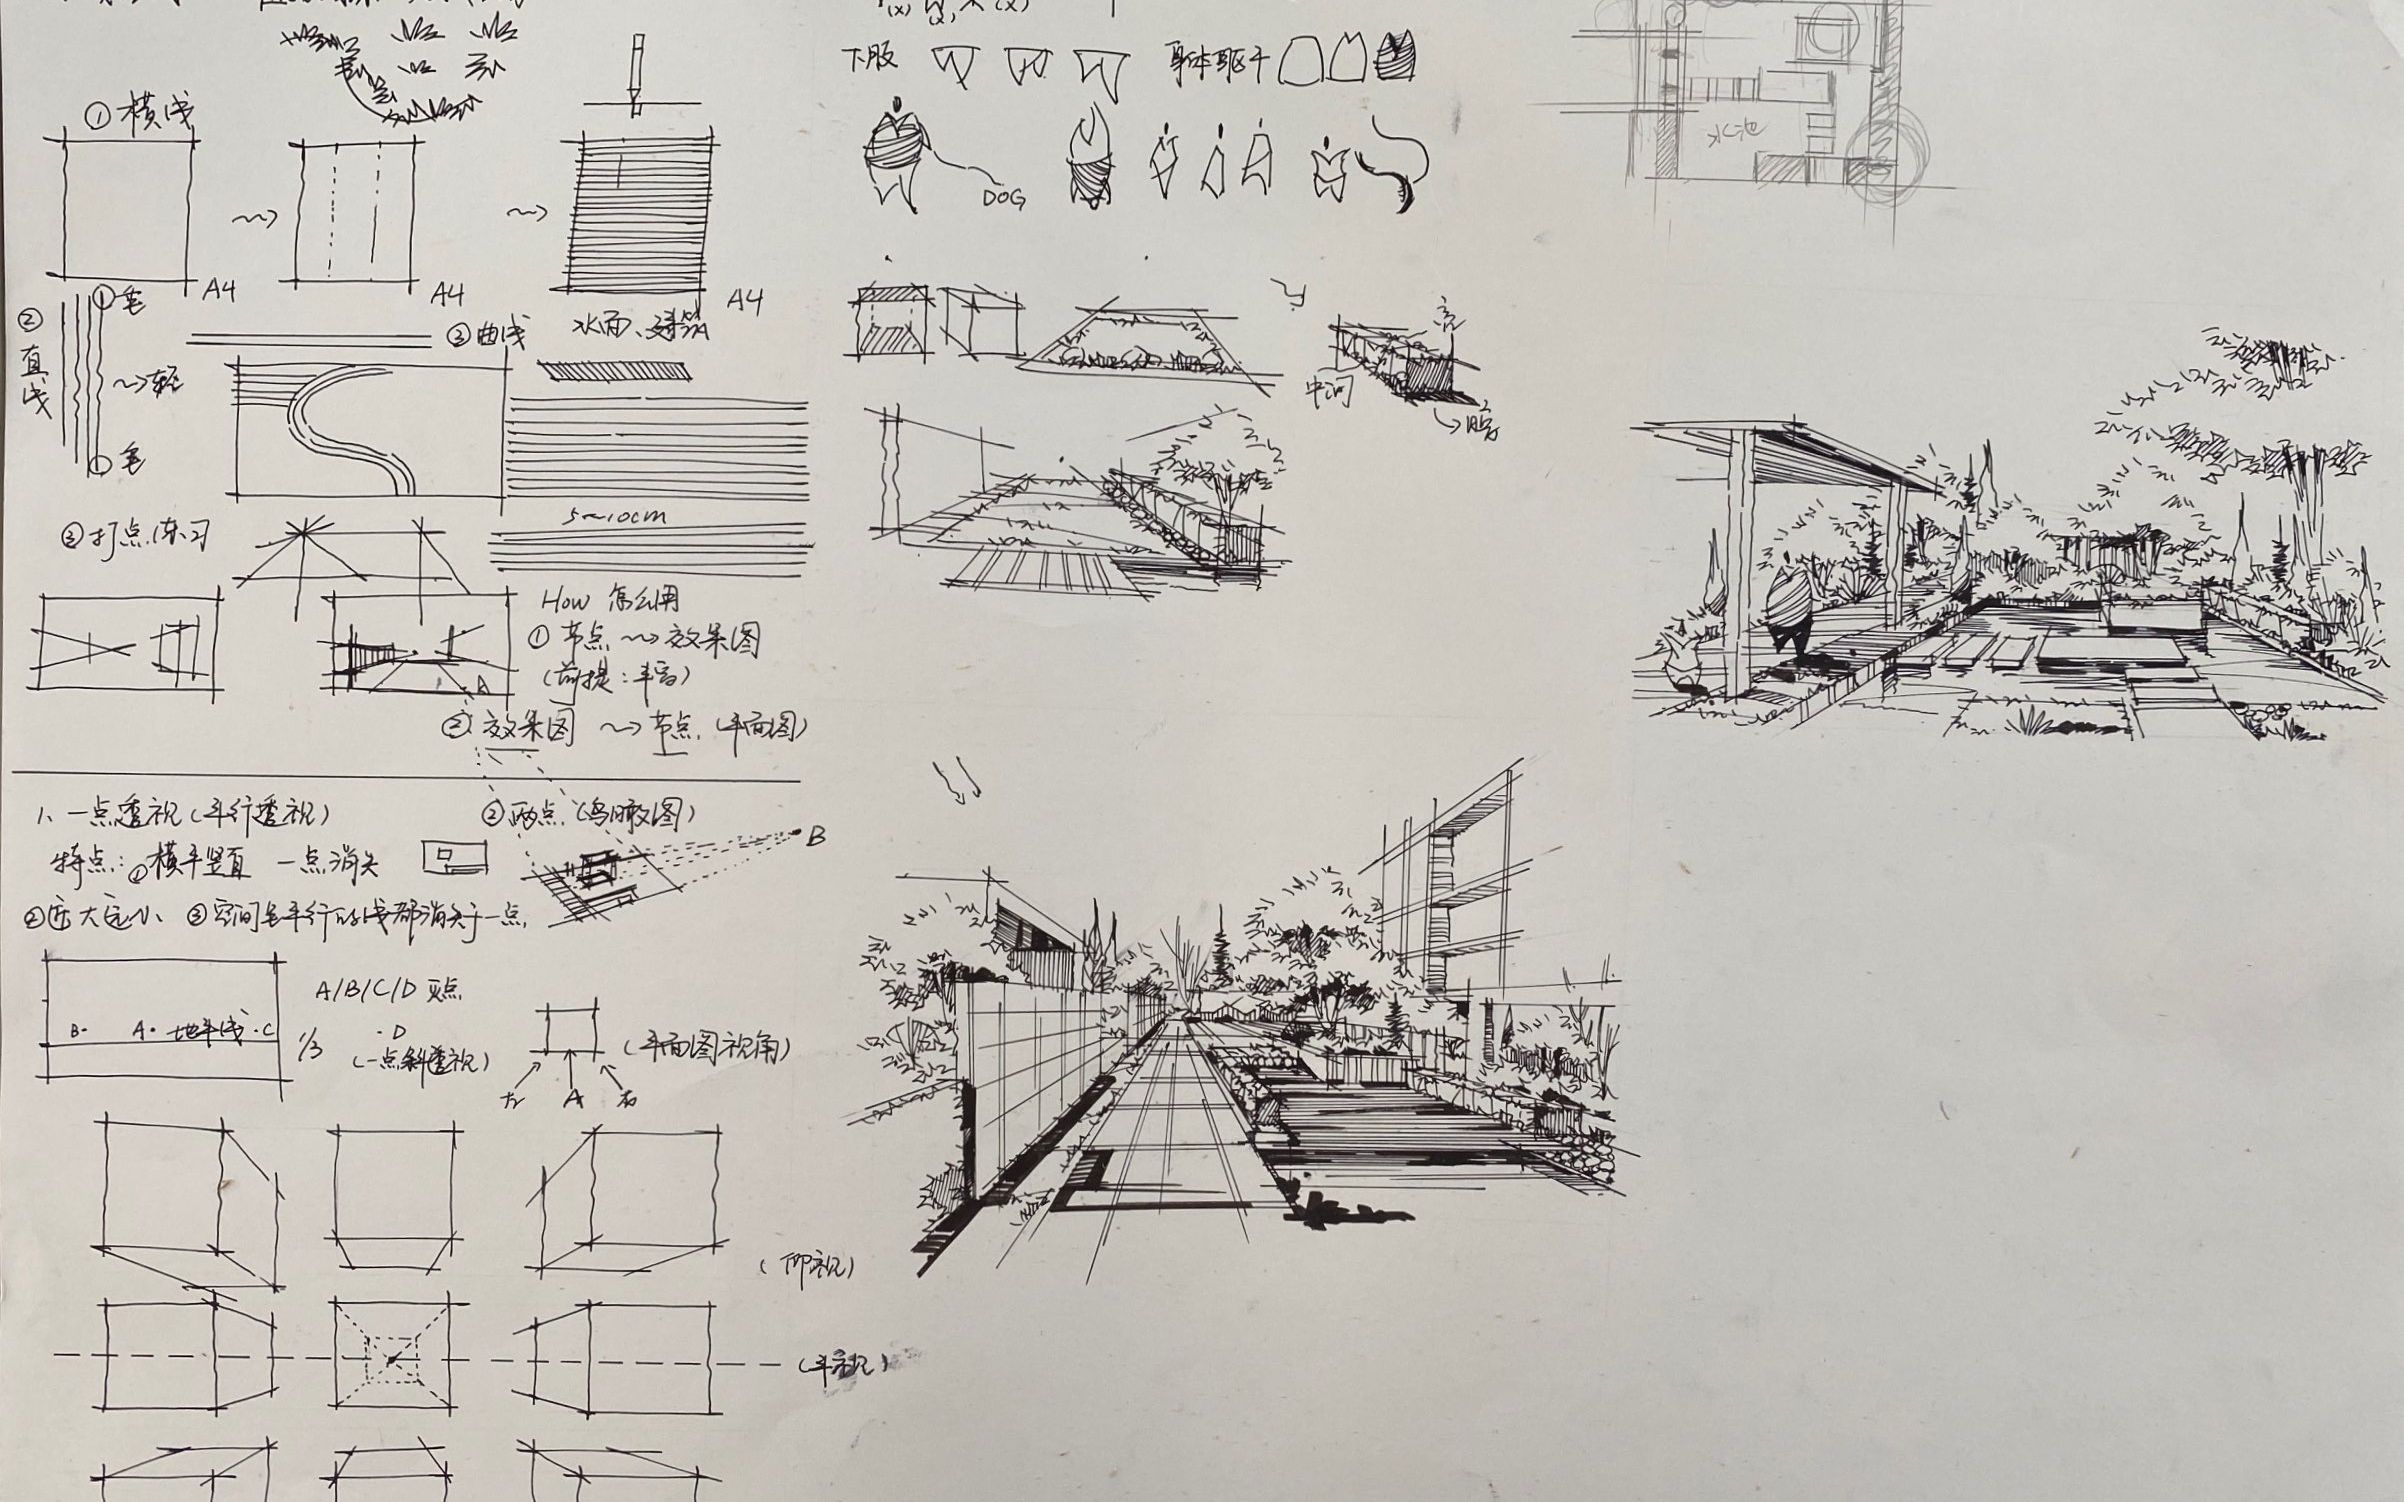 ① 横线
A4
A4
A4
水面、建筑
② 直线
① 毛
~→轻
① 毛
③ 曲线
5~10cm
③ 打点练习
How 怎么用
① 节点 ~→ 效果图
(前提:丰富)
A
② 效果图 ~→ 节点 (平面图)
1、一点透视(平行透视)
特点:① 横平竖直 一点消失
② 近大远小 ③ 空间是平行的线都消失于一点
② 两点 (鸟瞰图)
B
A/B/C/D 灭点
B· A· 地平线 ·C
1/3
·D
(一点斜透视)
(平面图视角)
左 A 右
(仰视)
(平视)
(x) (x) (x)
下肢
身体躯干
DOG
亮
中间
暗
水池